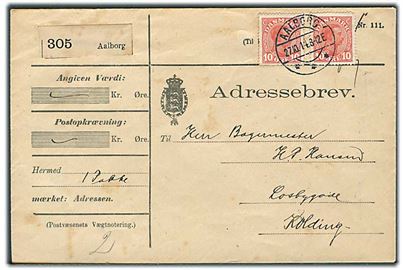 305 Aalborg
Nr. 111.
(Til
DANMARK
10
DANMARK
10
AALBORG
27.10.14.3-12E
Angiven Værdi:
Kr. Øre.
Adressebrev.
Postopkrævning:
Kr. Øre.
Til Herr Bagermester
Hermed
H. P. Hansen
1 Pakke
mærket: Adressen.
Losbygade
(Postvæsenets Vægtnotering.)
Kolding
2